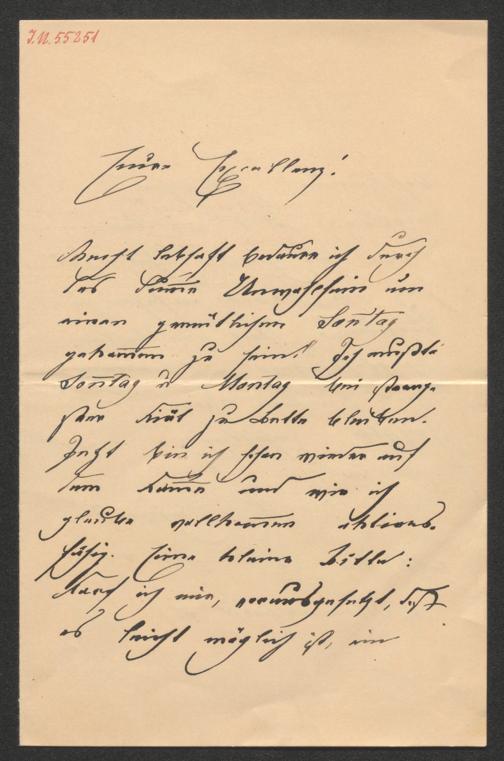 J.N. 55251
Eure Excellenz!
Recht lebhaft bedaure ich durch
das dumme Unwohlsein um
einen gemütlichen Sontag
gekommen zu sein! Ich mußte
Sontag u Montag bei streng-
ster Diät zu Bette bleiben.
Jetzt bin ich schon wieder auf
dem Damme und wie ich
glaube vollkommen aktions-
fähig. Eine kleine Bitte:
Darf ich mir, vorausgesetzt, daß
es leicht möglich ist, ein